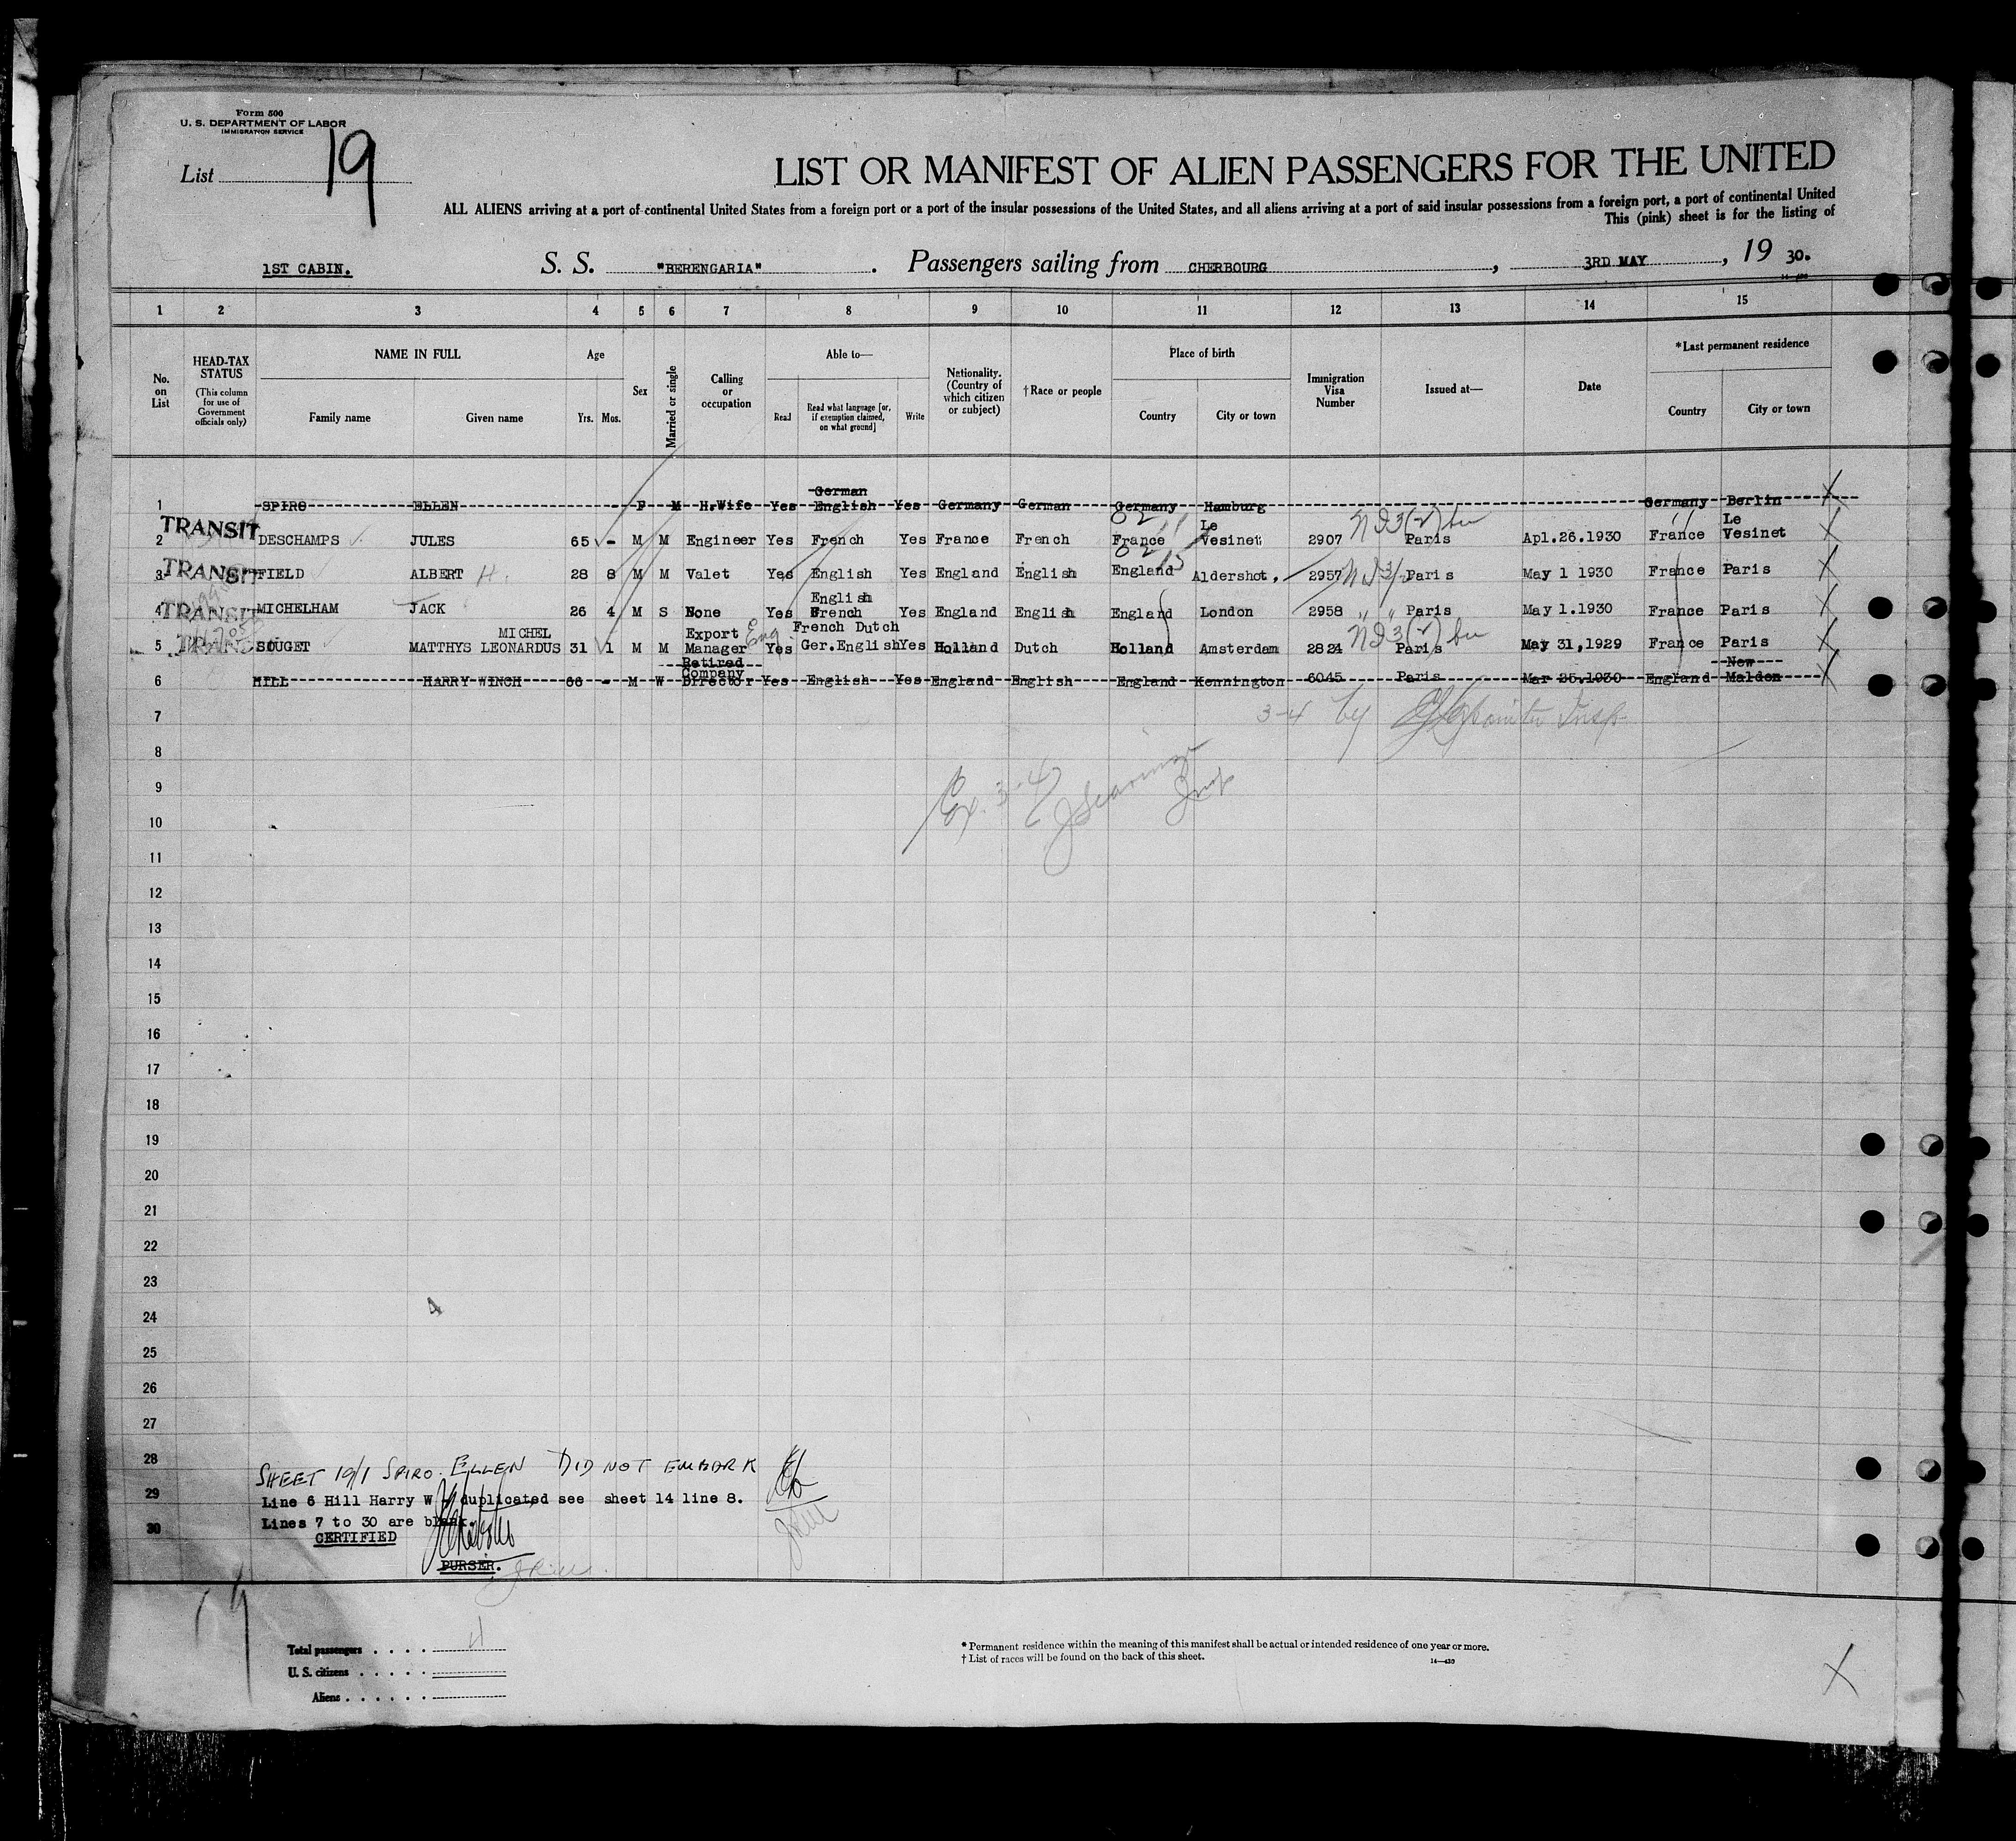 Form 500
U. S. DEPARTMENT OF LABOR
IMMIGRATION SERVICE
List 19
LIST OR MANIFEST OF ALIEN PASSENGERS FOR THE UNITED
ALL ALIENS arriving at a port of continental United States from a foreign port or a port of the insular possessions of the United States, and all aliens arriving at a port of said insular possessions from a foreign port, a port of continental United
This (pink) sheet is for the listing of
1ST CABIN. S. S. "BERENGARIA". Passengers sailing from CHERBOURG, 3RD MAY, 19 30.
1 2 3 4 5 6 7 8 9 10 11 12 13 14 15
No. on List
HEAD-TAX STATUS (This column for use of Government officials only)
NAME IN FULL
Family name Given name
Age
Yrs. Mos.
Sex
Married or single
Calling or occupation
Able to—
Read Read what language [or, if exemption claimed, on what ground] Write
Nationality. (Country of which citizen or subject)
†Race or people
Place of birth
Country City or town
Immigration Visa Number
Issued at—
Date
*Last permanent residence
Country City or town
1 SPIRO ELLEN F M H.Wife Yes German English Yes Germany German Germany Hamburg Germany Berlin
TRANSIT
2 DESCHAMPS JULES 65 - M M Engineer Yes French Yes France French France Le Vesinet 2907 Paris Apl.26.1930 France Le Vesinet
TRANSIT
3 FIELD ALBERT H. 28 8 M M Valet Yes English Yes England English England Aldershot. 2957 Paris May 1 1930 France Paris
TRANSIT
4 MICHELHAM JACK 26 4 M S None Yes English French Yes England English England London 2958 " " Paris May 1.1930 France Paris
TRANSIT
5 SOUGET MATTHYS LEONARDUS MICHEL 31 1 M M Export Manager Eng Yes French Dutch Ger.English Yes Holland Dutch Holland Amsterdam 2824 Paris May 31,1929 France Paris
6 HILL HARRY WINCH 66 - M W Retired Company Director Yes English Yes England English England Kennington 6045 Paris Mar 25.1930 England New Malden
7
3-4 by Insp.
8
9
Ex. 3-4 Insp
10
11
12
13
14
15
16
17
18
19
20
21
22
23
24
4
25
26
27
28
SHEET 19/1 SPIRO. ELLEN DID NOT EMBARK
29
Line 6 Hill Harry W duplicated see sheet 14 line 8.
30
Lines 7 to 30 are blank.
CERTIFIED
PURSER.
Total passengers . . . . 4
U. S. citizens . . . . .
Aliens . . . . . .
* Permanent residence within the meaning of this manifest shall be actual or intended residence of one year or more.
† List of races will be found on the back of this sheet.
14—430